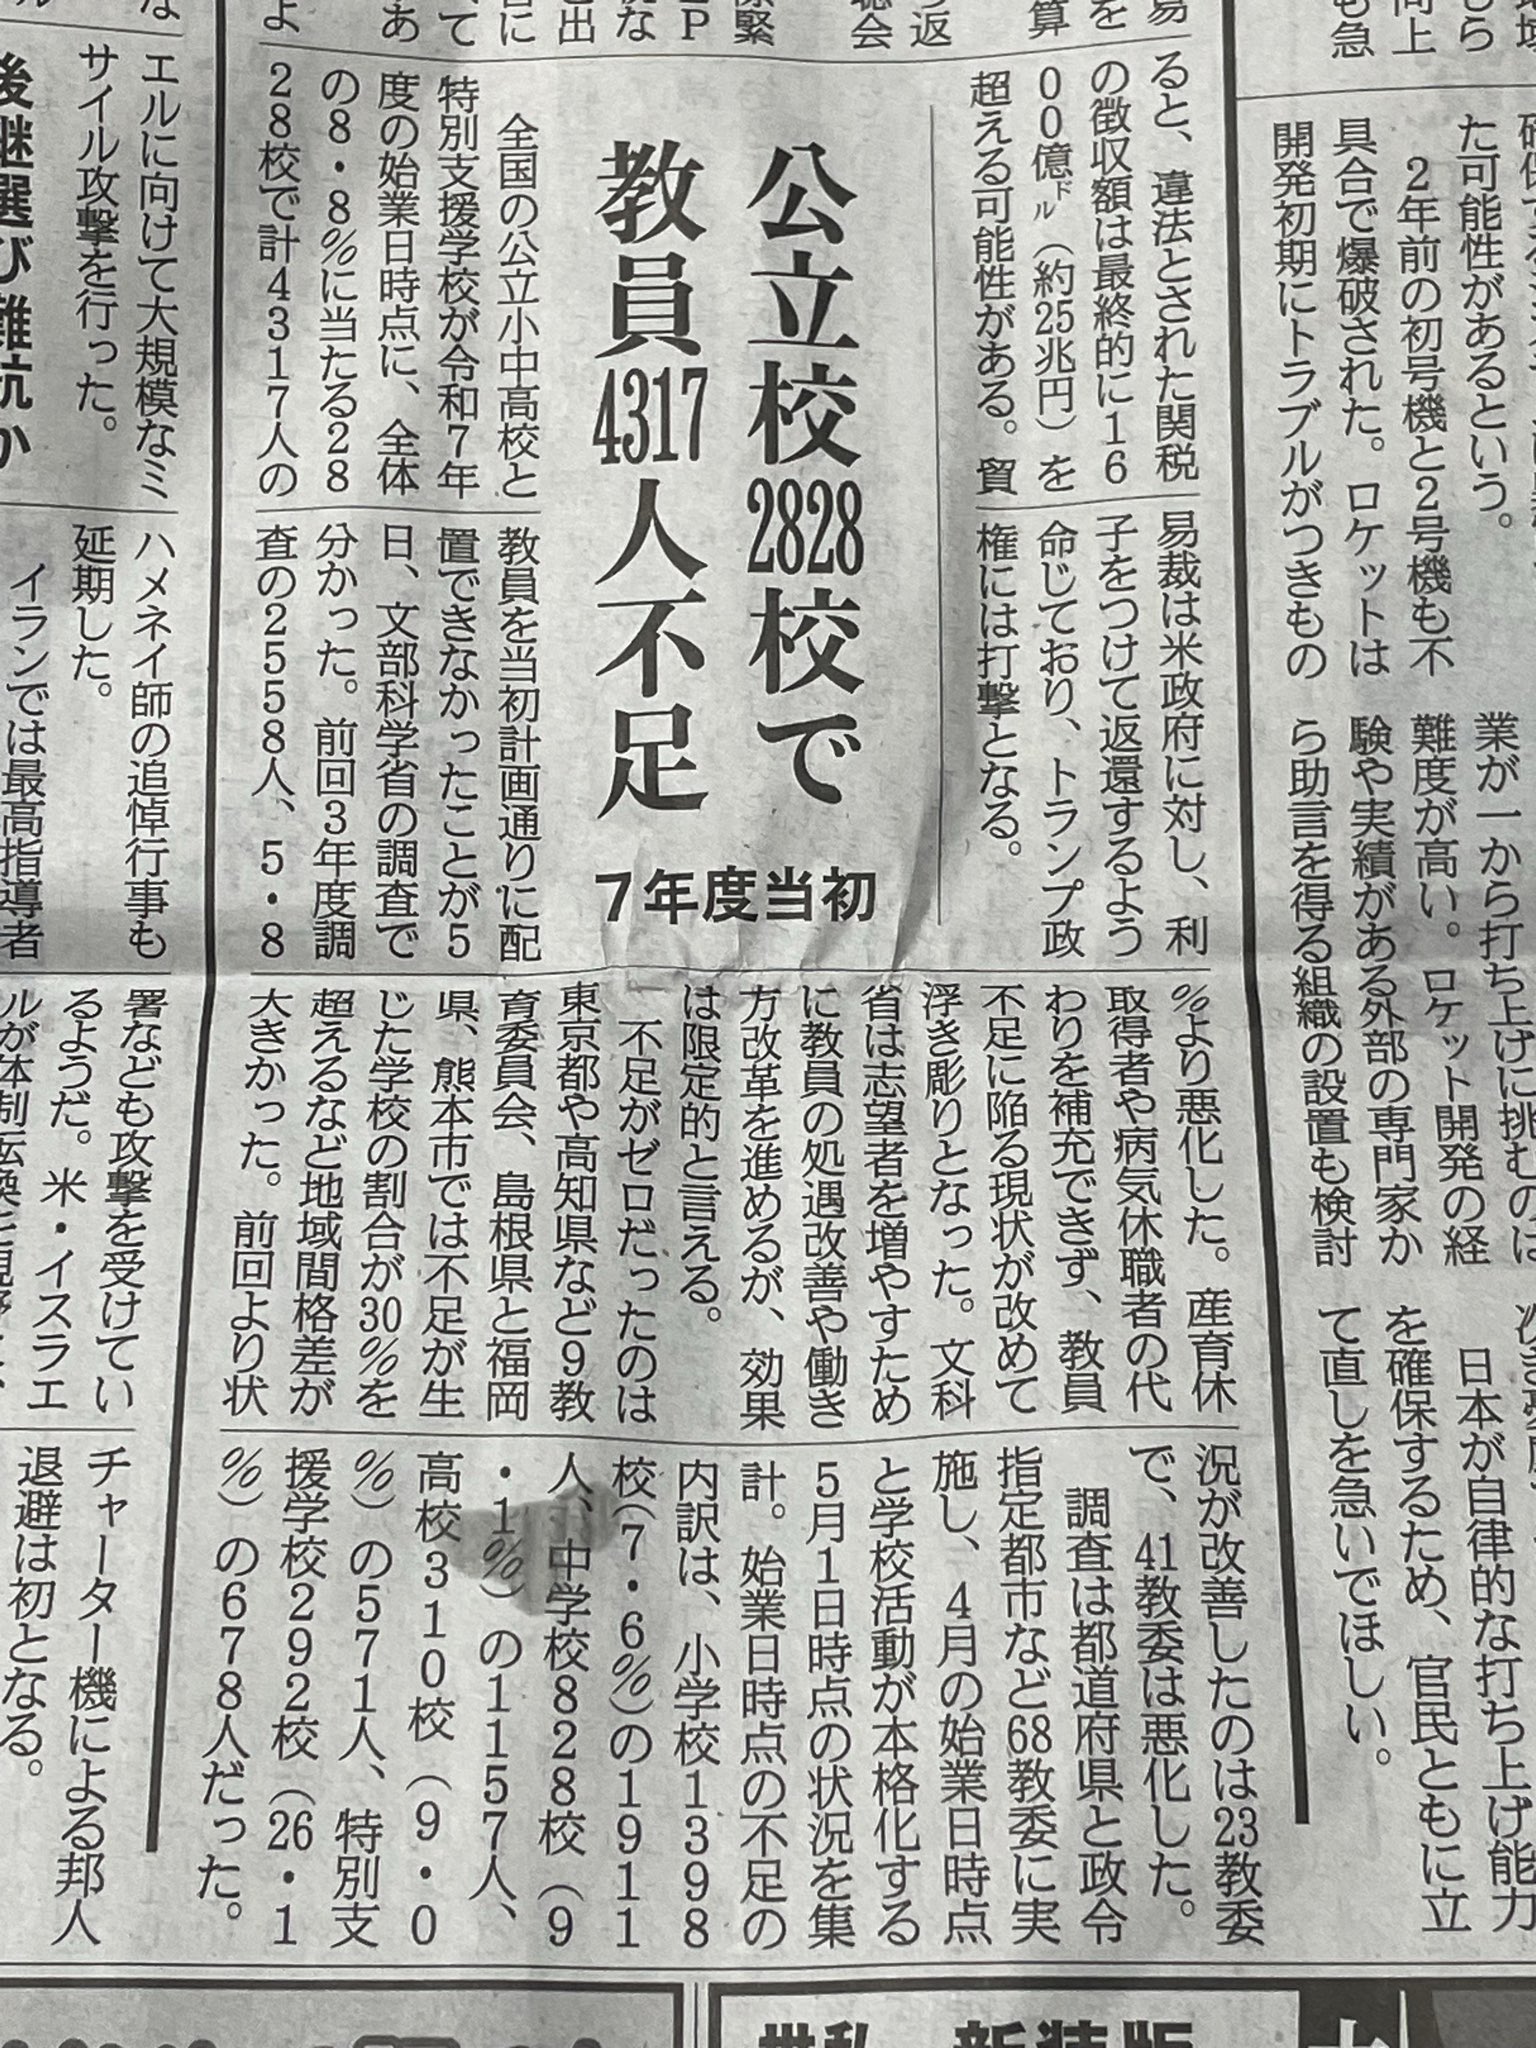 しら
向上
も急
た可能性があるという。
２年前の初号機と２号機も不
具合で爆破された。ロケットは
開発初期にトラブルがつきもの
業が一から打ち上げに挑むのは
難度が高い。ロケット開発の経
験や実績がある外部の専門家か
ら助言を得る組織の設置も検討
日本が自律的な打ち上げ能力
を確保するため、官民ともに立
て直しを急いでほしい。
ると、違法とされた関税
の徴収額は最終的に１６
００億㌦（約25兆円）を
超える可能性がある。貿
易裁は米政府に対し、利
子をつけて返還するよう
命じており、トランプ政
権には打撃となる。
公立校2828校で
教員4317人不足
７年度当初
全国の公立小中高校と
特別支援学校が令和７年
度の始業日時点に、全体
の８・８％に当たる２８
２８校で計４３１７人の
教員を当初計画通りに配
置できなかったことが５
日、文部科学省の調査で
分かった。前回３年度調
査の２５５８人、５・８
％より悪化した。産育休
取得者や病気休職者の代
わりを補充できず、教員
不足に陥る現状が改めて
浮き彫りとなった。文科
省は志望者を増やすため
に教員の処遇改善や働き
方改革を進めるが、効果
は限定的と言える。
不足がゼロだったのは
東京都や高知県など９教
育委員会、島根県と福岡
県、熊本市では不足が生
じた学校の割合が30％を
超えるなど地域間格差が
大きかった。前回より状
況が改善したのは23教委
で、41教委は悪化した。
調査は都道府県と政令
指定都市など68教委に実
施し、４月の始業日時点
と学校活動が本格化する
５月１日時点の状況を集
計。始業日時点の不足の
内訳は、小学校１３９８
校（７・６％）の１９１１
人、中学校８２８校（９
・１％）の１１５７人、
高校３１０校（９・０
％）の５７１人、特別支
援学校２９２校（26・１
％）の６７８人だった。
エルに向けて大規模なミ
サイル攻撃を行った。
後継選び難航か
ハメネイ師の追悼行事も
延期した。
イランでは最高指導者
署なども攻撃を受けてい
るようだ。米・イスラエ
チャーター機による邦人
退避は初となる。
新装版